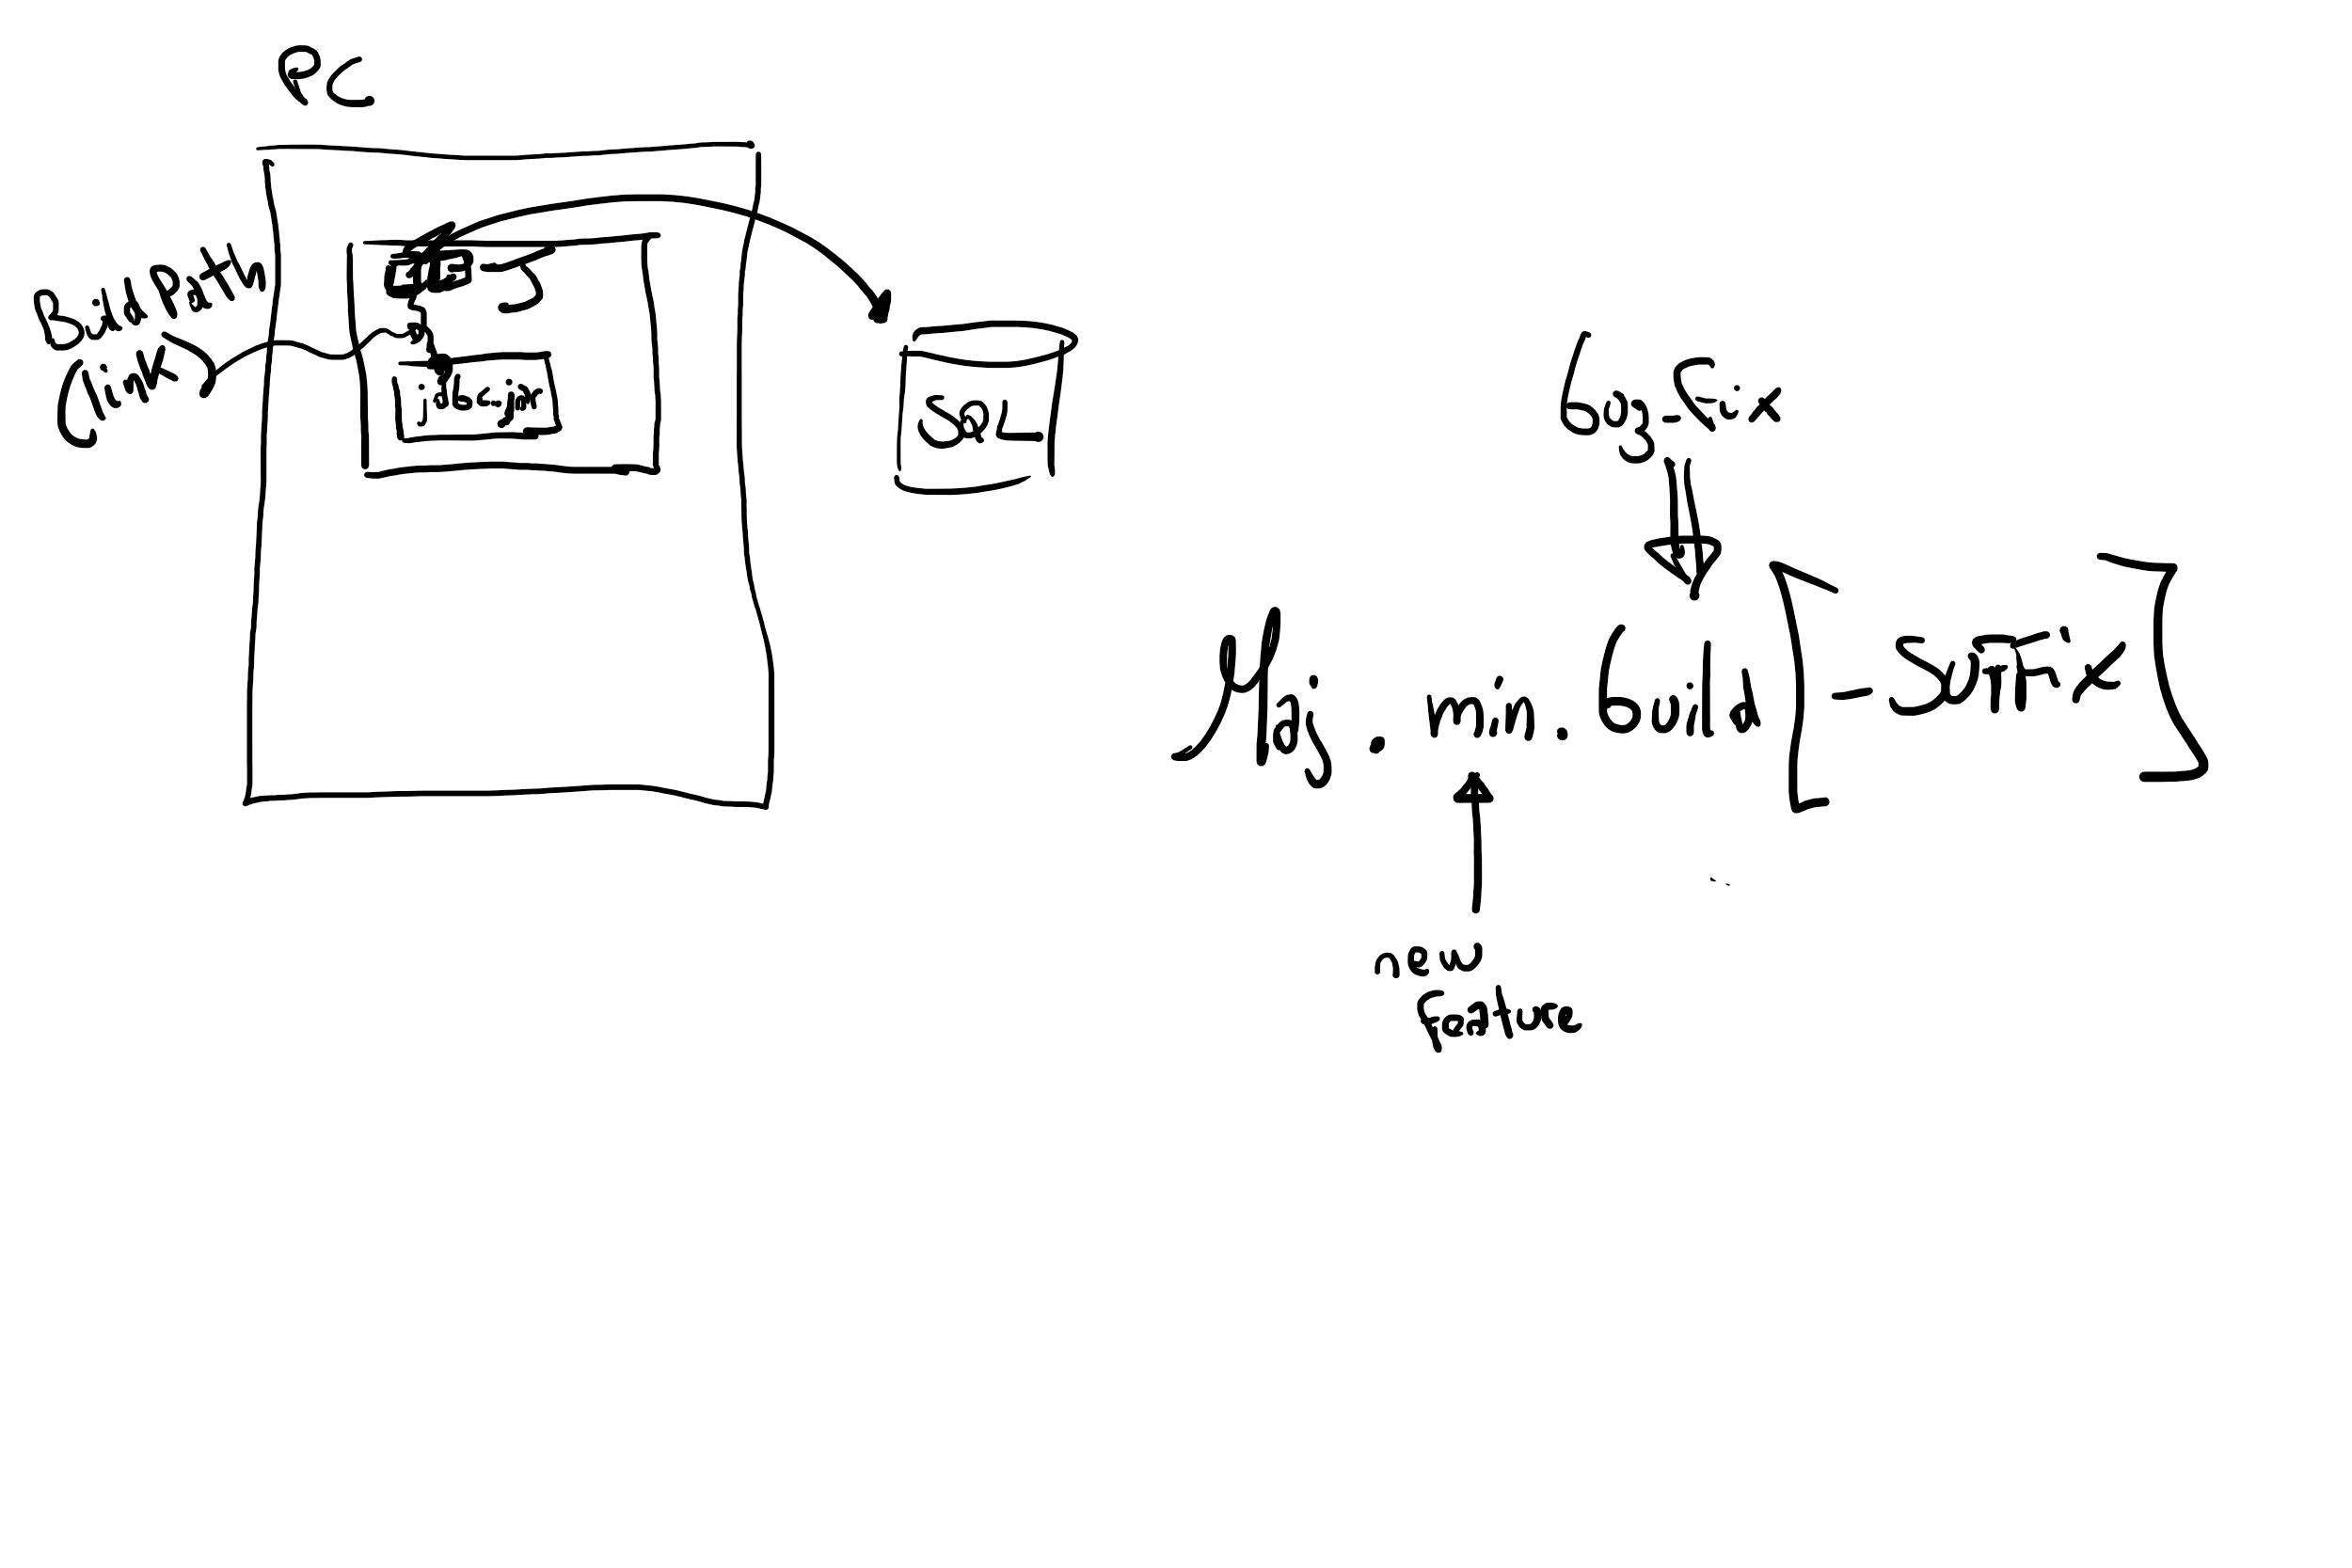 PC
BuildPath
(link)
jdbc.jar
SQL
bug-fix
Maj. min. build [-suffix]
new
feature